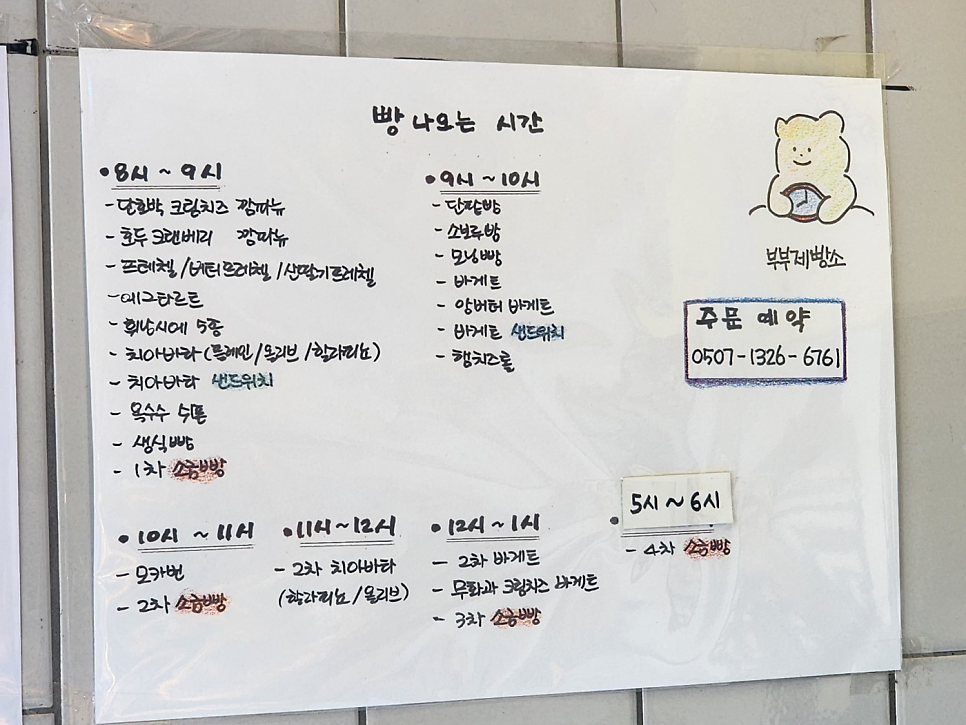 빵 나오는 시간
• 8시 ~ 9시
- 단호박 크림치즈 깜파뉴
- 호두 크랜베리 깜파뉴
- 프레첼 / 버터프레첼 / 산딸기프레첼
- 에그타르트
- 휘낭시에 5종
- 치아바타 (플레인 / 올리브 / 할라피뇨)
- 치아바타 샌드위치
- 옥수수 스콘
- 생식빵
- 1차 소금빵
• 9시 ~ 10시
- 단팥빵
- 소보루빵
- 모닝빵
- 바게트
- 앙버터 바게트
- 바게트 샌드위치
- 햄치즈롤
부부제빵소
주문 예약
0507-1326-6761
• 10시 ~ 11시
- 모카번
- 2차 소금빵
• 11시 ~ 12시
- 2차 치아바타
(할라피뇨 / 올리브)
• 12시 ~ 1시
- 2차 바게트
- 무화과 크림치즈 바게트
- 3차 소금빵
• 5시 ~ 6시
- 4차 소금빵